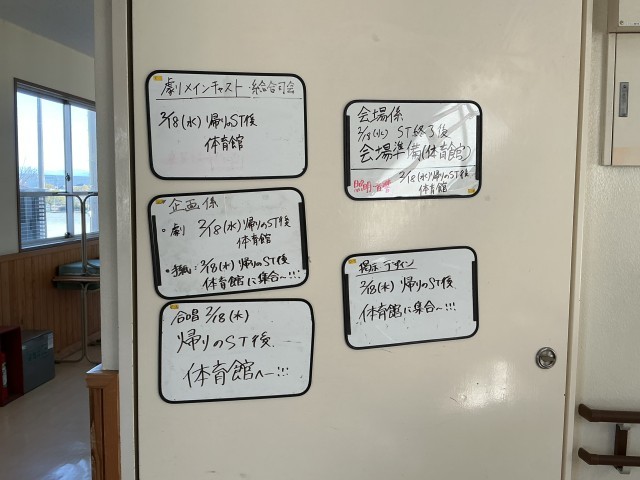 劇メインキャスト・総合司会
2/18(水) 帰りのST後
体育館
企画係
・劇 2/18(水) 帰りのST後
体育館
2/18(水) 帰りのST後
体育館に集合〜!!!
合唱 2/18(水)
帰りのST後
体育館へ〜!!!
会場係
2/18(水) ST終了後
会場準備(体育館)
2/18(水) 帰りのST後
体育館
掲示・デザイン
2/18(水) 帰りのST後
体育館に集合〜!!!